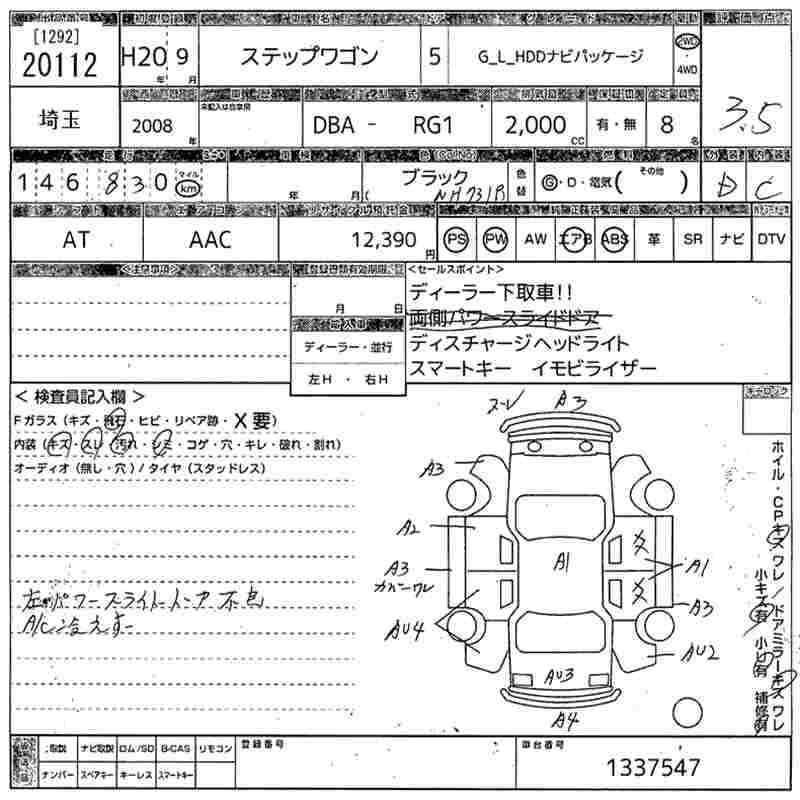 [1292]
20112
H20 年 9 月
ステップワゴン
5
G_L_HDDナビパッケージ
2WD
・
4WD
埼玉
2008 年
未記入は自家用
DBA - RG1
2,000 CC
有・無
8 名
3.5
146830 マイル km
年 月(
ブラック
NH731P
色替
G・D・電気( その他 )
D
C
AT
AAC
12,390 円
PS
PW
AW
エアB
ABS
革
SR
ナビ
DTV
<注意事項>
登録書類有効期限
月 日
輸入車
ディーラー・並行
左H ・ 右H
<セールスポイント>
ディーラー下取車!!
両側パワースライドドア
ディスチャージヘッドライト
スマートキー イモビライザー
< 検査員記入欄 >
Fガラス(キズ・飛石・ヒビ・リペア跡・X要)
内装(キズ・スレ・汚れ・シミ・コゲ・穴・キレ・破れ・割れ)
オーディオ(無し・穴)/タイヤ(スタッドレス)
左側パワースライドドア不良
A/C冷えず
スレ
A3
A3
A2
A3
カバーワレ
AU4
A1
A1
A3
AU2
AU3
A4
キーロック
ホイル・CPキズ ワレ/ドアミラーキズ ワレ
小キズ有 小ヒ有 補修有
取説
ナビ取説
ロム/SD
B-CAS
リモコン
ナンバー
スペアキー
キーレス
スマートキー
登録番号
車台番号
1337547